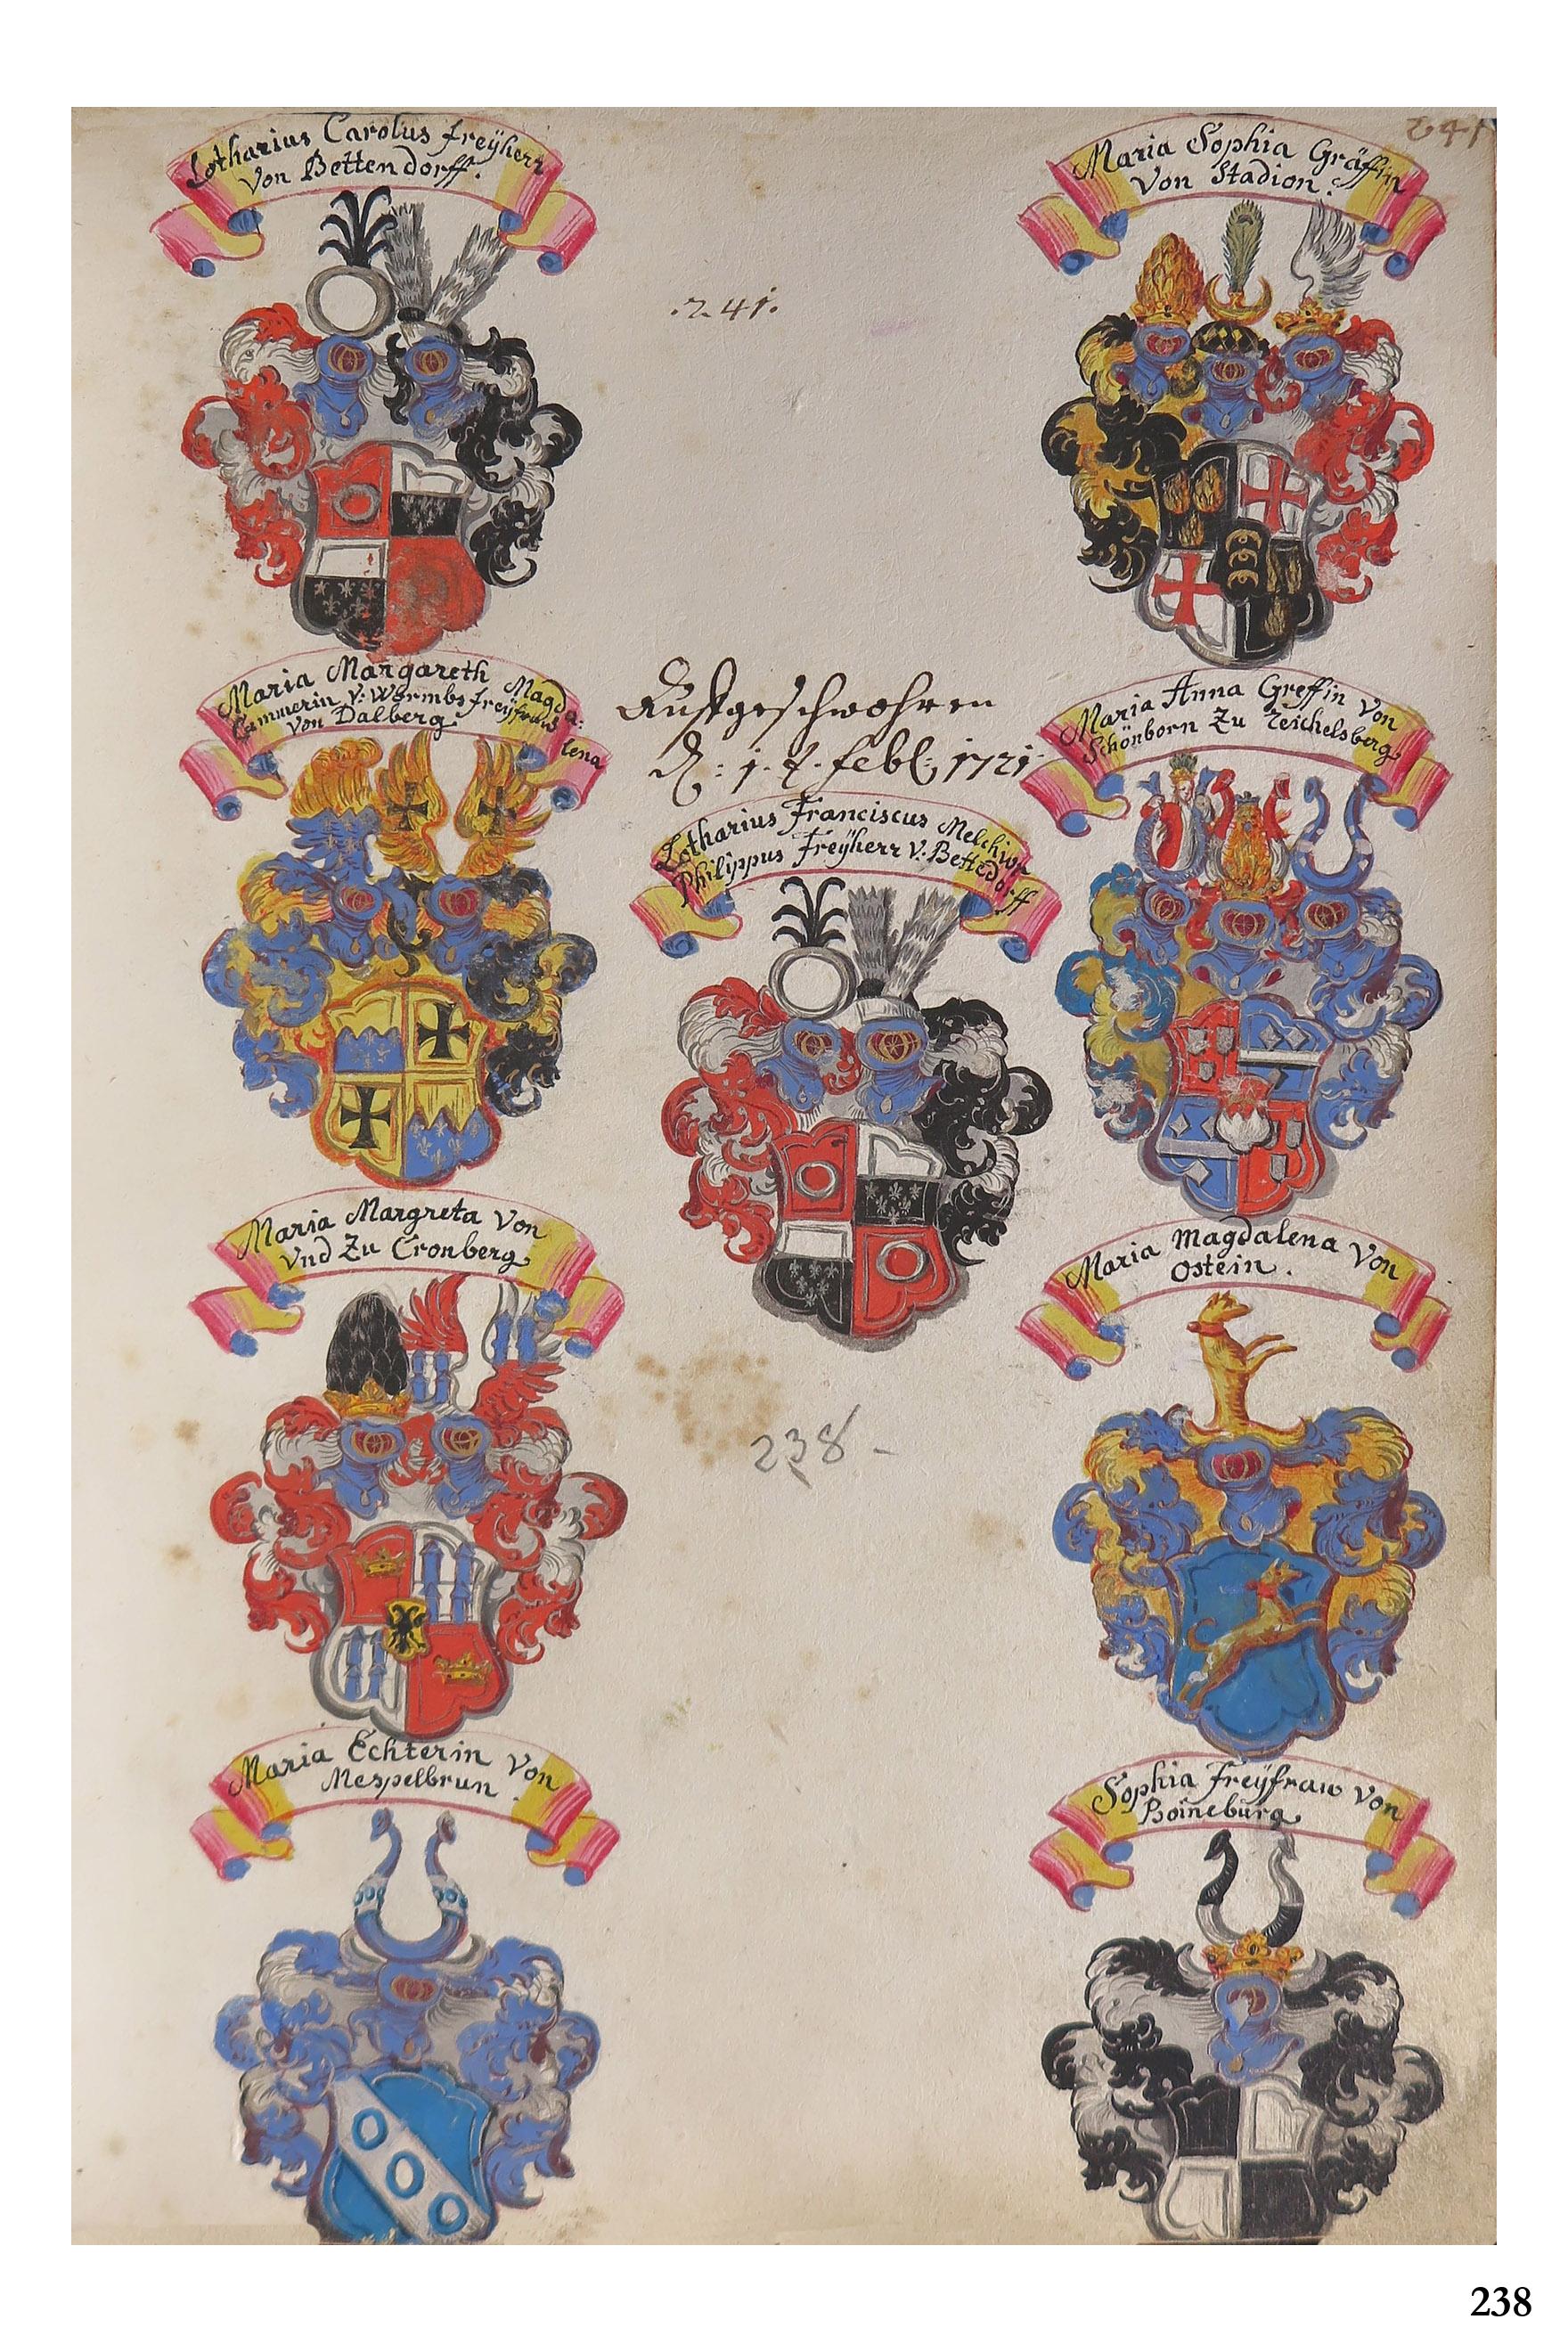 Lotharius Carolus freÿherr
von Bettendorff.
Maria Sophia Gräffin
von Stadion.
241
.241.
Maria Margareth Magda:
lena
Cämmerin V: Wormbs freÿfraw
von Dalberg.
Auffgeschwohren
1721
Maria Anna Greffin von
Schönborn Zu Reichelsberg
Lotharius Franciscus Melchior
Philippus Freÿherr V: Bettēdorff
Maria Margreta Von
Vnd Zu Cronberg
Maria Magdalena Von
Ostein.
238
Maria Echterin Von
Mespelbrun.
Sophia Freÿfraw von
Boineburg
238